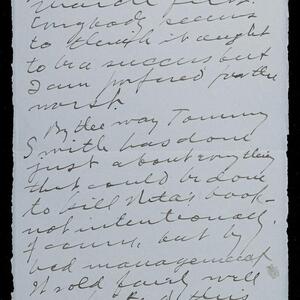 March first.
Everybody seems
to think it ought
to be a success but
I am prepared for the
worst.
By the way Tommy
Smith has done
just about everything
that could be done
to kill Rita's book –
not intentionally,
of course, but by
bad management.
It sold fairly well
this